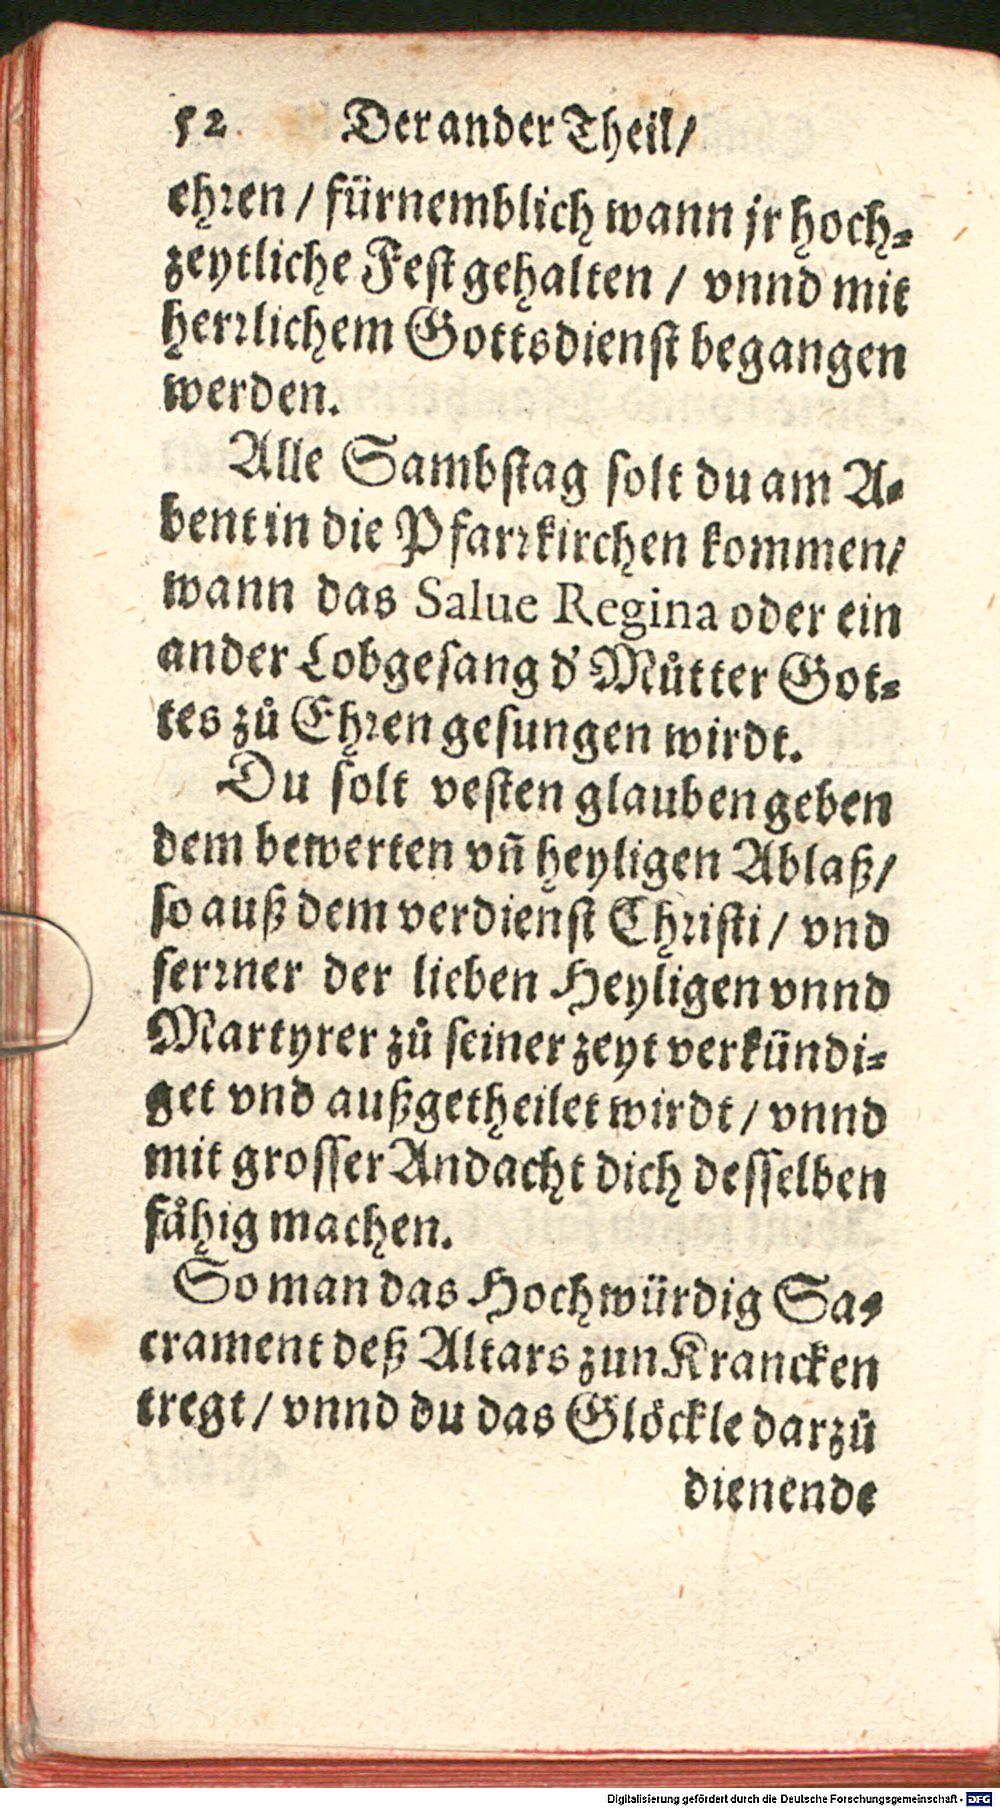 52 Der ander Theil/
ehren / fürnemblich wann jr hoch-
zeytliche Fest gehalten / vnnd mit
herrlichem Gottsdienst begangen
werden.
Alle Sambstag solt du am A-
bent in die Pfarrkirchen kommen/
wann das Salue Regina oder ein
ander Lobgesang d' Můtter Got-
tes zů Ehren gesungen wirdt.
Du solt vesten glauben geben
dem bewerten vñ heyligen Ablaß/
so auß dem verdienst Christi / vnd
ferrner der lieben Heyligen vnnd
Martyrer zů seiner zeyt verkündi-
get vnd außgetheilet wirdt / vnnd
mit grosser Andacht dich desselben
fåhig machen.
So man das Hochwürdig Sa-
crament deß Altars zun Krancken
tregt / vnnd du das Glöckle darzů
dienende
Digitalisierung gefördert durch die Deutsche Forschungsgemeinschaft - DFG